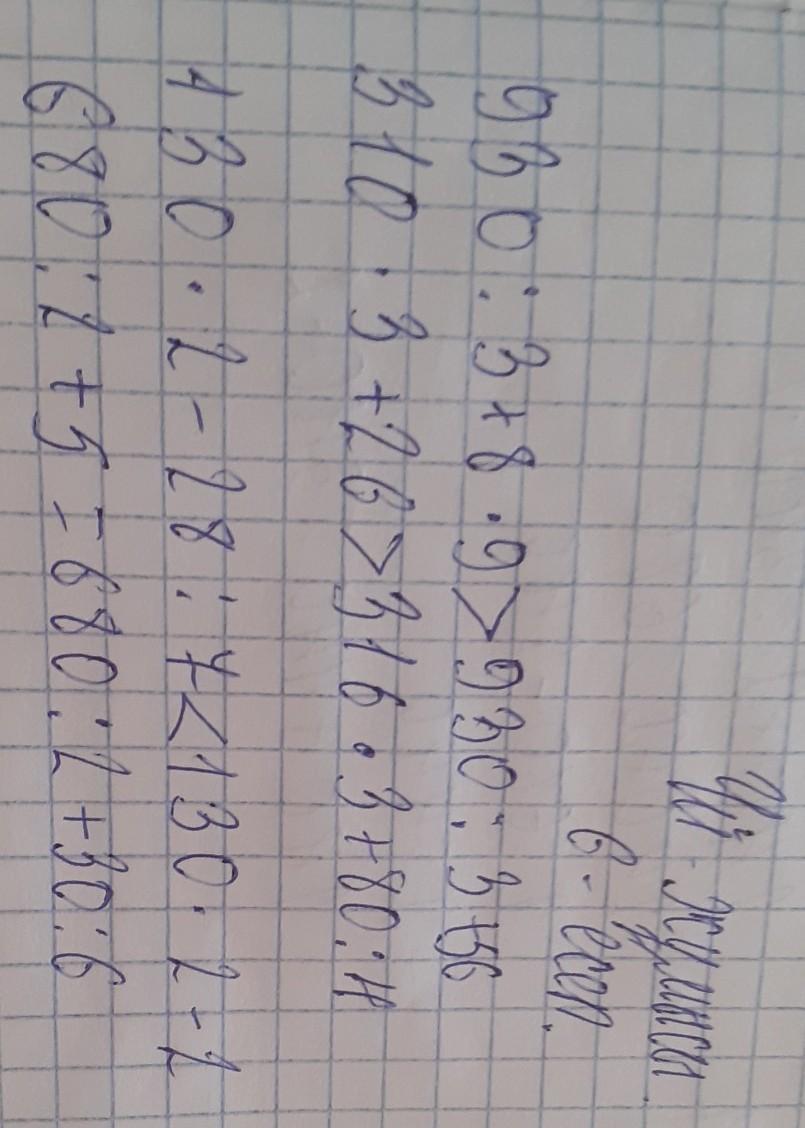 Үй жұмысы.
6 - есеп.
930 : 3 + 8 · 9 > 930 : 3 + 56
310 · 3 + 26 > 316 · 3 + 80 : 4
130 · 2 - 28 : 7 < 130 · 2 - 2
680 : 2 + 5 = 680 : 2 + 30 : 6